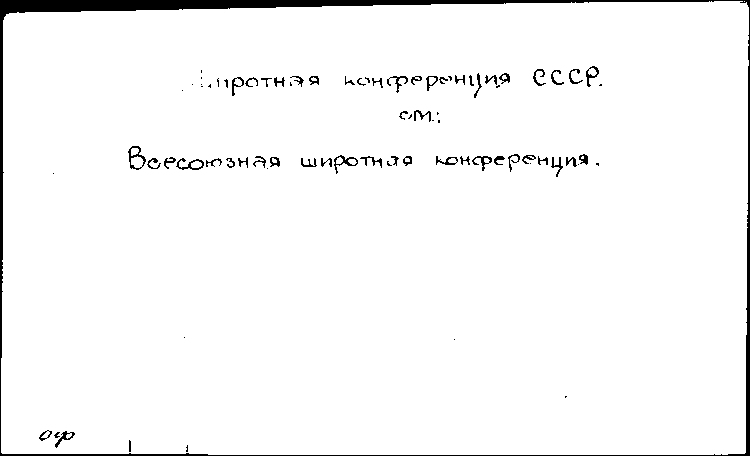 Широтная конференция СССР.
см.:
Всесоюзная широтная конференция.
оф